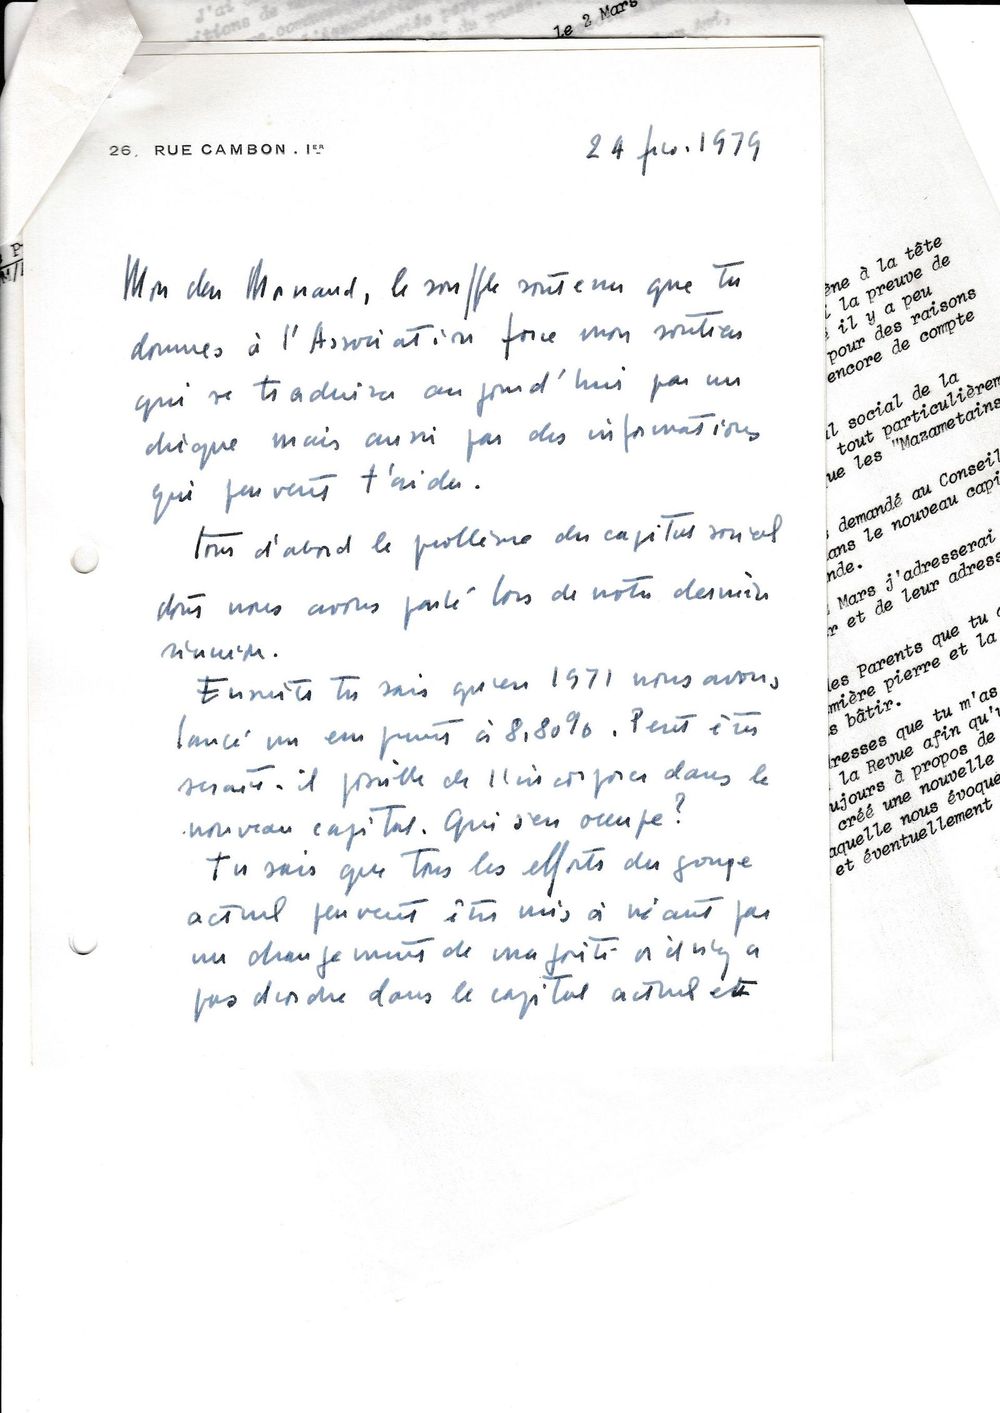 le 2 Mars
26, RUE CAMBON. Iᴱᴿ
24 fev. 1979
Mon cher Monand, le souffle soutenu que tu
donnes à l'Association force mon soutien
qui se traduira aujourd'hui par un
chèque mais aussi par des informations
qui peuvent t'aider.
Tout d'abord le problème du capital social
dont nous avons parlé lors de notre dernière
réunion.
Ensuite tu sais qu'en 1971 nous avons
lancé un emprunt à 8,80%. Peut être
serait-il possible de l'incorporer dans le
nouveau capital. Qui s'en occupe ?
Tu sais que tous les efforts du groupe
actuel peuvent être mis à néant par
un changement de majorité or il n'y a
pas d'ordre dans le capital actuel et
ène à la tête
la preuve de
il y a peu
pour des raisons
encore de compte
l social de la
tout particulièrem
ue les "Mazametains
demandé au Conseil
ans le nouveau capi
nde.
Mars j'adresserai
r et de leur adress
les Parents que tu
mière pierre et la
s bâtir.
resses que tu m'as
la Revue afin qu'
ujours à propos de
créé une nouvelle
aquelle nous évoque
et éventuellement